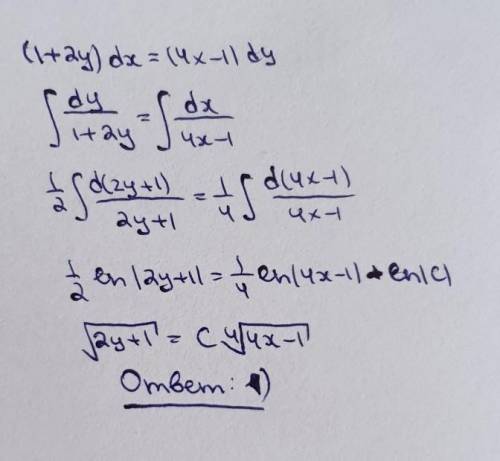 (1+2y) dx = (4x-1) dy
∫ dy/(1+2y) = ∫ dx/(4x-1)
1/2 ∫ d(2y+1)/(2y+1) = 1/4 ∫ d(4x-1)/(4x-1)
1/2 ln|2y+1| = 1/4 ln|4x-1| + ln|C|
√(2y+1) = C ∜(4x-1)
Ответ: )